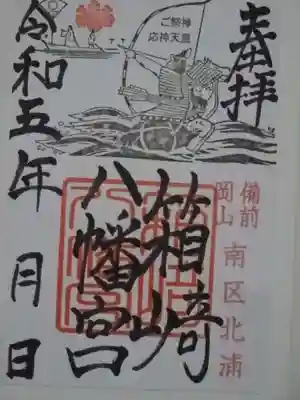 奉拝
ご祭神
応神天皇
備前
岡山
南区北浦
筥崎
八幡宮
令和五年 月 日